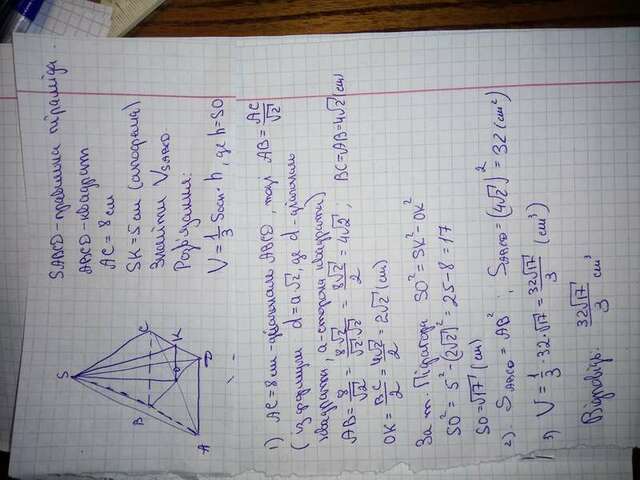 SABCD - правильна піраміда
ABCD - квадрат
AC = 8 см
SK = 5 см (апофема)
Знайти V_SABCD
Розв'язання:
V = 1/3 Sосн · h, де h = SO
S
B
C
K
O
A
D
1) AC = 8 см - діагональ ABCD, тоді AB = AC/√2
(із формули d = a√2, де d - діагональ
квадрата, a - сторона квадрата)
AB = 8/√2 = 8√2/√2√2 = 8√2/2 = 4√2; BC = AB = 4√2 (см)
OK = BC/2 = 4√2/2 = 2√2 (см)
За т. Піфагора SO² = SK² - OK²
SO² = 5² - (2√2)² = 25 - 8 = 17
SO = √17 (см)
2) S_ABCD = AB²; S_ABCD = (4√2)² = 32 (см²)
3) V = 1/3 · 32 · √17 = 32√17/3 (см³)
Відповідь: 32√17/3 см³